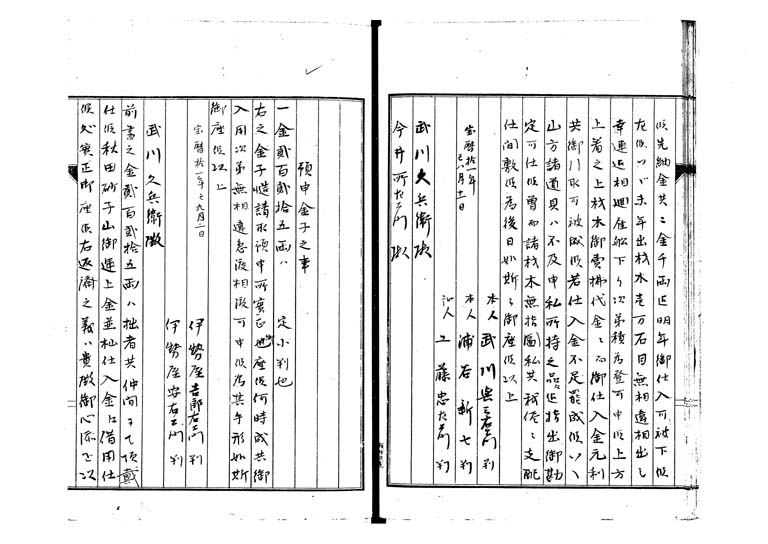 候先納金共ニ金千両迄明年御仕入可被下候
左候ハヽ来年出材木壱万石目無相違相出シ
幸運迄相廻住舩下り次第積為登可申候上方
上着之上材木御売拂代金ニ而御仕入金元利
共御引取可被成候若仕入金不足罷成候ハヽ
山方諸道具ハ不及申私所持之品迄指出御勘
定可仕候曽而諸材木無指圖私共我侭ニ支配
仕間敷候為後日如斯ニ御座候以上
宝暦拾一年
巳八月十一日
本人 武川與三右衛門 判
本人 浦石新七 判
証人 工藤忠左衛門 判
武川久兵衛殿
今井所左衛門殿
預申金子之事
一金貳百貳拾五両ハ 定小判也
右之金子慥請取預申所実正也御座候何時成共御
入用次第無相違急度相渡可申候為其手形如斯
御座候以上
宝暦拾一年巳九月二日
伊勢屋吉郎右衛門 判
伊勢屋安右衛門 判
武川久兵衛殿
前書之金貳百貳拾五両ハ拙者共仲間ニて頂戴
仕候秋田砂子山御運上金並杣仕入金ニ借用仕
候処実正御座候右返済之義ハ貴殿御心添を以